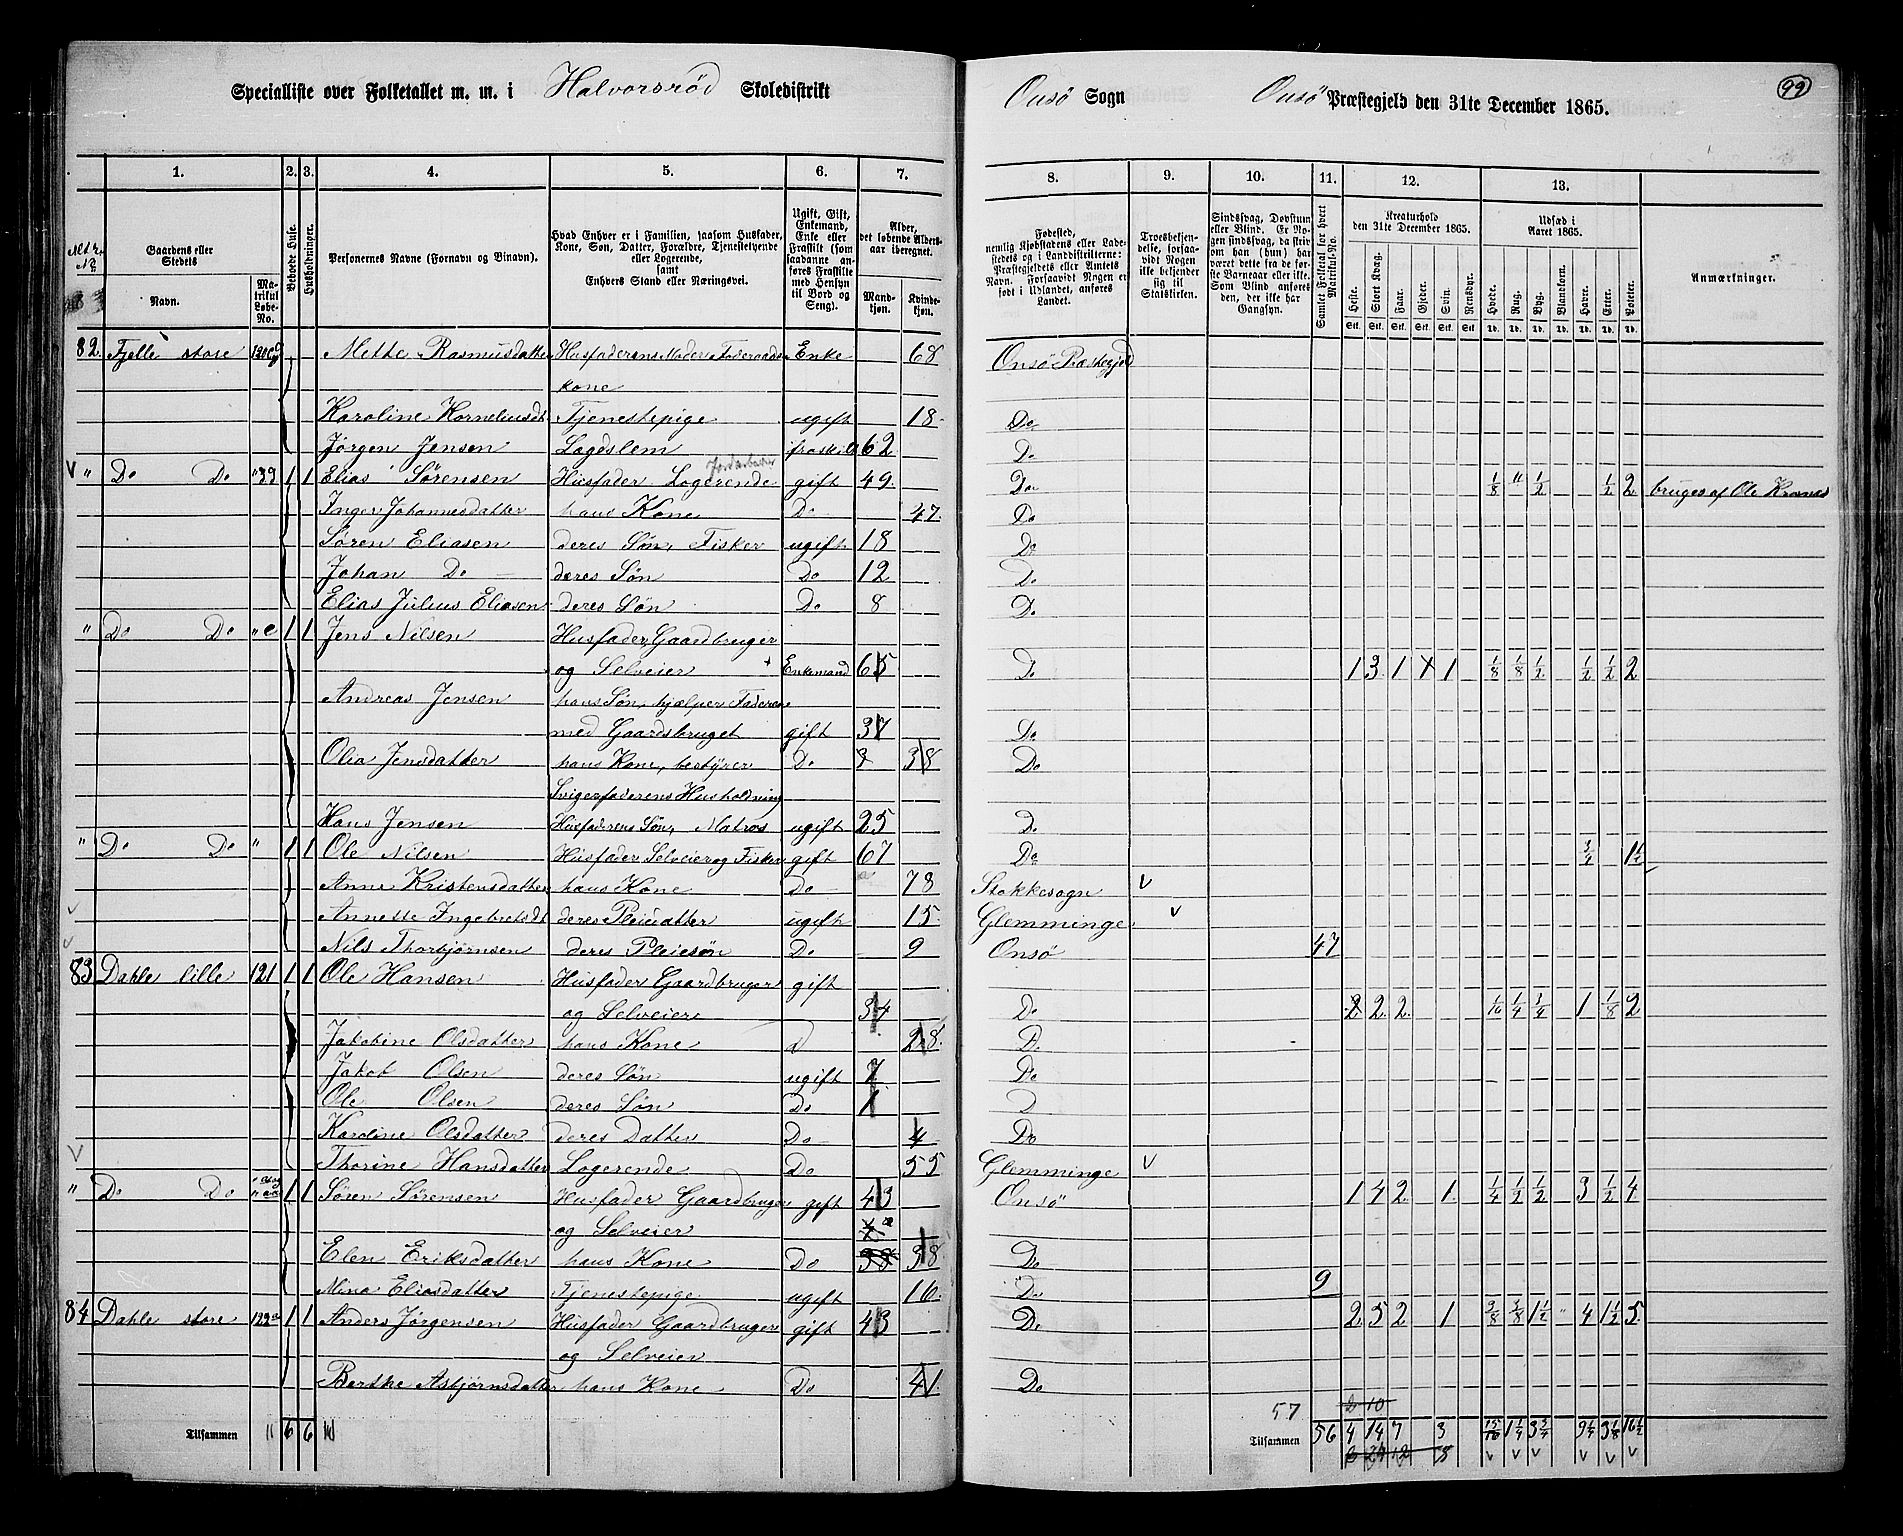 Specialliste over Folketallet m. m. i Halvorsröd Skoledistrikt
Onsö Sogn Onsö Præstegjeld den 31te December 1865. 99
1. 2. 3. 4. 5. 6. 7. 8. 9. 10. 11. 12. 13.
Gaardens eller Stedets
Navn. Matrikul Løbe-No.
Beboede Huse.
Husholdninger.
Personernes Navne (Fornavn og Binavn).
Hvad Enhver er i Familien, saasom Husfader, Kone, Søn, Datter, Forældre, Tjenestetyende eller Logerende, samt Enhvers Stand eller Næringsvei.
Ugift, Gift, Enkemand, Enke eller Fraskilt (som saadanne anføres Fraskilte med Hensyn til Bord og Seng).
Alder, det løbende Aldersaar iberegnet.
Mandkjøn. Kvindekjøn.
Fødested, nemlig Kjøbstadens eller Ladestedets og i Landdistrikterne: Præstegjeldets eller Amtets Navn. Forsaavidt Nogen er født i Udlandet, anføres Landet.
Troesbekjendelse, forsaavidt Nogen ikke bekjender sig til Statskirken.
Sindssvag, Døvstum eller Blind. Er Nogen sindssvag, da skrives om han (hun) har været dette fra de første Barneaar eller ikke. Som Blind anføres den, der ikke har Gangsyn.
Samlet Folketal for hvert Matrikul-No.
Kreaturhold den 31te December 1865.
Heste. Stort Kvæg. Faar. Gjeder. Svin. Rensdyr.
Udsæd i Aaret 1865.
Hvede. Rug. Byg. Blankorn. Havre. Erter. Poteter.
Anmærkninger.
82. Fjelle store Mette Rasmusdatter Husfaderens Moder, Foderaads Enke 68 Onsö Præstegjeld
kone
Karoline Korneliusdt. Tjenestepige ugift 18 Do
Jørgen Jensen Lægdslem fraskilt 62 Do
" Do Do 1 1 Elias Sørensen Husfader Logerende gift 49 Do 1/8 " 1/2 1/2 2 bruges af Ole
Inger Johannesdatter hans Kone Do 47 Do
Søren Eliasen deres Søn, Fisker ugift 18 Do
Johan Do deres Søn Do 12 Do
Elias Julius Eliasen deres Søn Do 8 Do
" Do Do " e 1 1 Jens Nilsen Husfader Gaardbruger
og Selveier Enkemand 65 Do 1 3 1 1 1/8 1/8 1/2 1/2 1/2 2
Andreas Jensen hans Søn, hjælper Faderen
med Gaardsbruget gift 37 Do
Olia Jensdatter hans Kone, bestyrer Do 38 Do
Svigerfaderens Husholdning
Hans Jensen Husfaderens Søn, Matros ugift 25 Do
" Do Do " 1 1 Ole Nilsen Husfader Selveier og Fisker gift 67 Do 1 1/2
Anne Kristensdatter hans Kone Do 78 Stokkesogn
Annette Ingebretsdt deres Pleiedatter ugift 15 Glemminge
Nils Thorbjørnsen deres Pleiesøn Do 9 Onsö 47
83 Dahle lille 121 1 1 Ole Hansen Husfader Gaardbruger gift
og Selveier 34 Do 2 2 2 1/16 1/4 3/4 1 1/8 2
Jakobine Olsdatter hans Kone d 28 D.
Jakob Olsen deres Søn ugift 7 Do
Ole Olsen deres Søn Do 1 D
Karoline Olsdatter deres Datter Do 4 Do
Thorine Hansdatter Logerende Do 55 Glemminge
" Do Do 1 1 Søren Sørensen Husfader Gaardbruger gift 43 Onsö 1 4 2 1 1/4 1/2 1/2 3 1/2 4
og Selveier
Elen Eriksdatter hans Kone Do 38 Do
Mina Eliasdatter Tjenestepige ugift 16 Do 9
84 Dahle store 122 1 1 Anders Jørgensen Husfader Gaardbruger gift 43 Do 2 5 2 1 3/8 3/8 1 1/2 " 4 1 1/2 5
og Selveier
Berthe Asbjørnsdatter hans Kone Do 41 Do
57
Tilsammen 6 6 Tilsammen 56 4 14 7 3 15/16 1 1/4 3 3/4 9 1/4 3 1/8 16 1/2